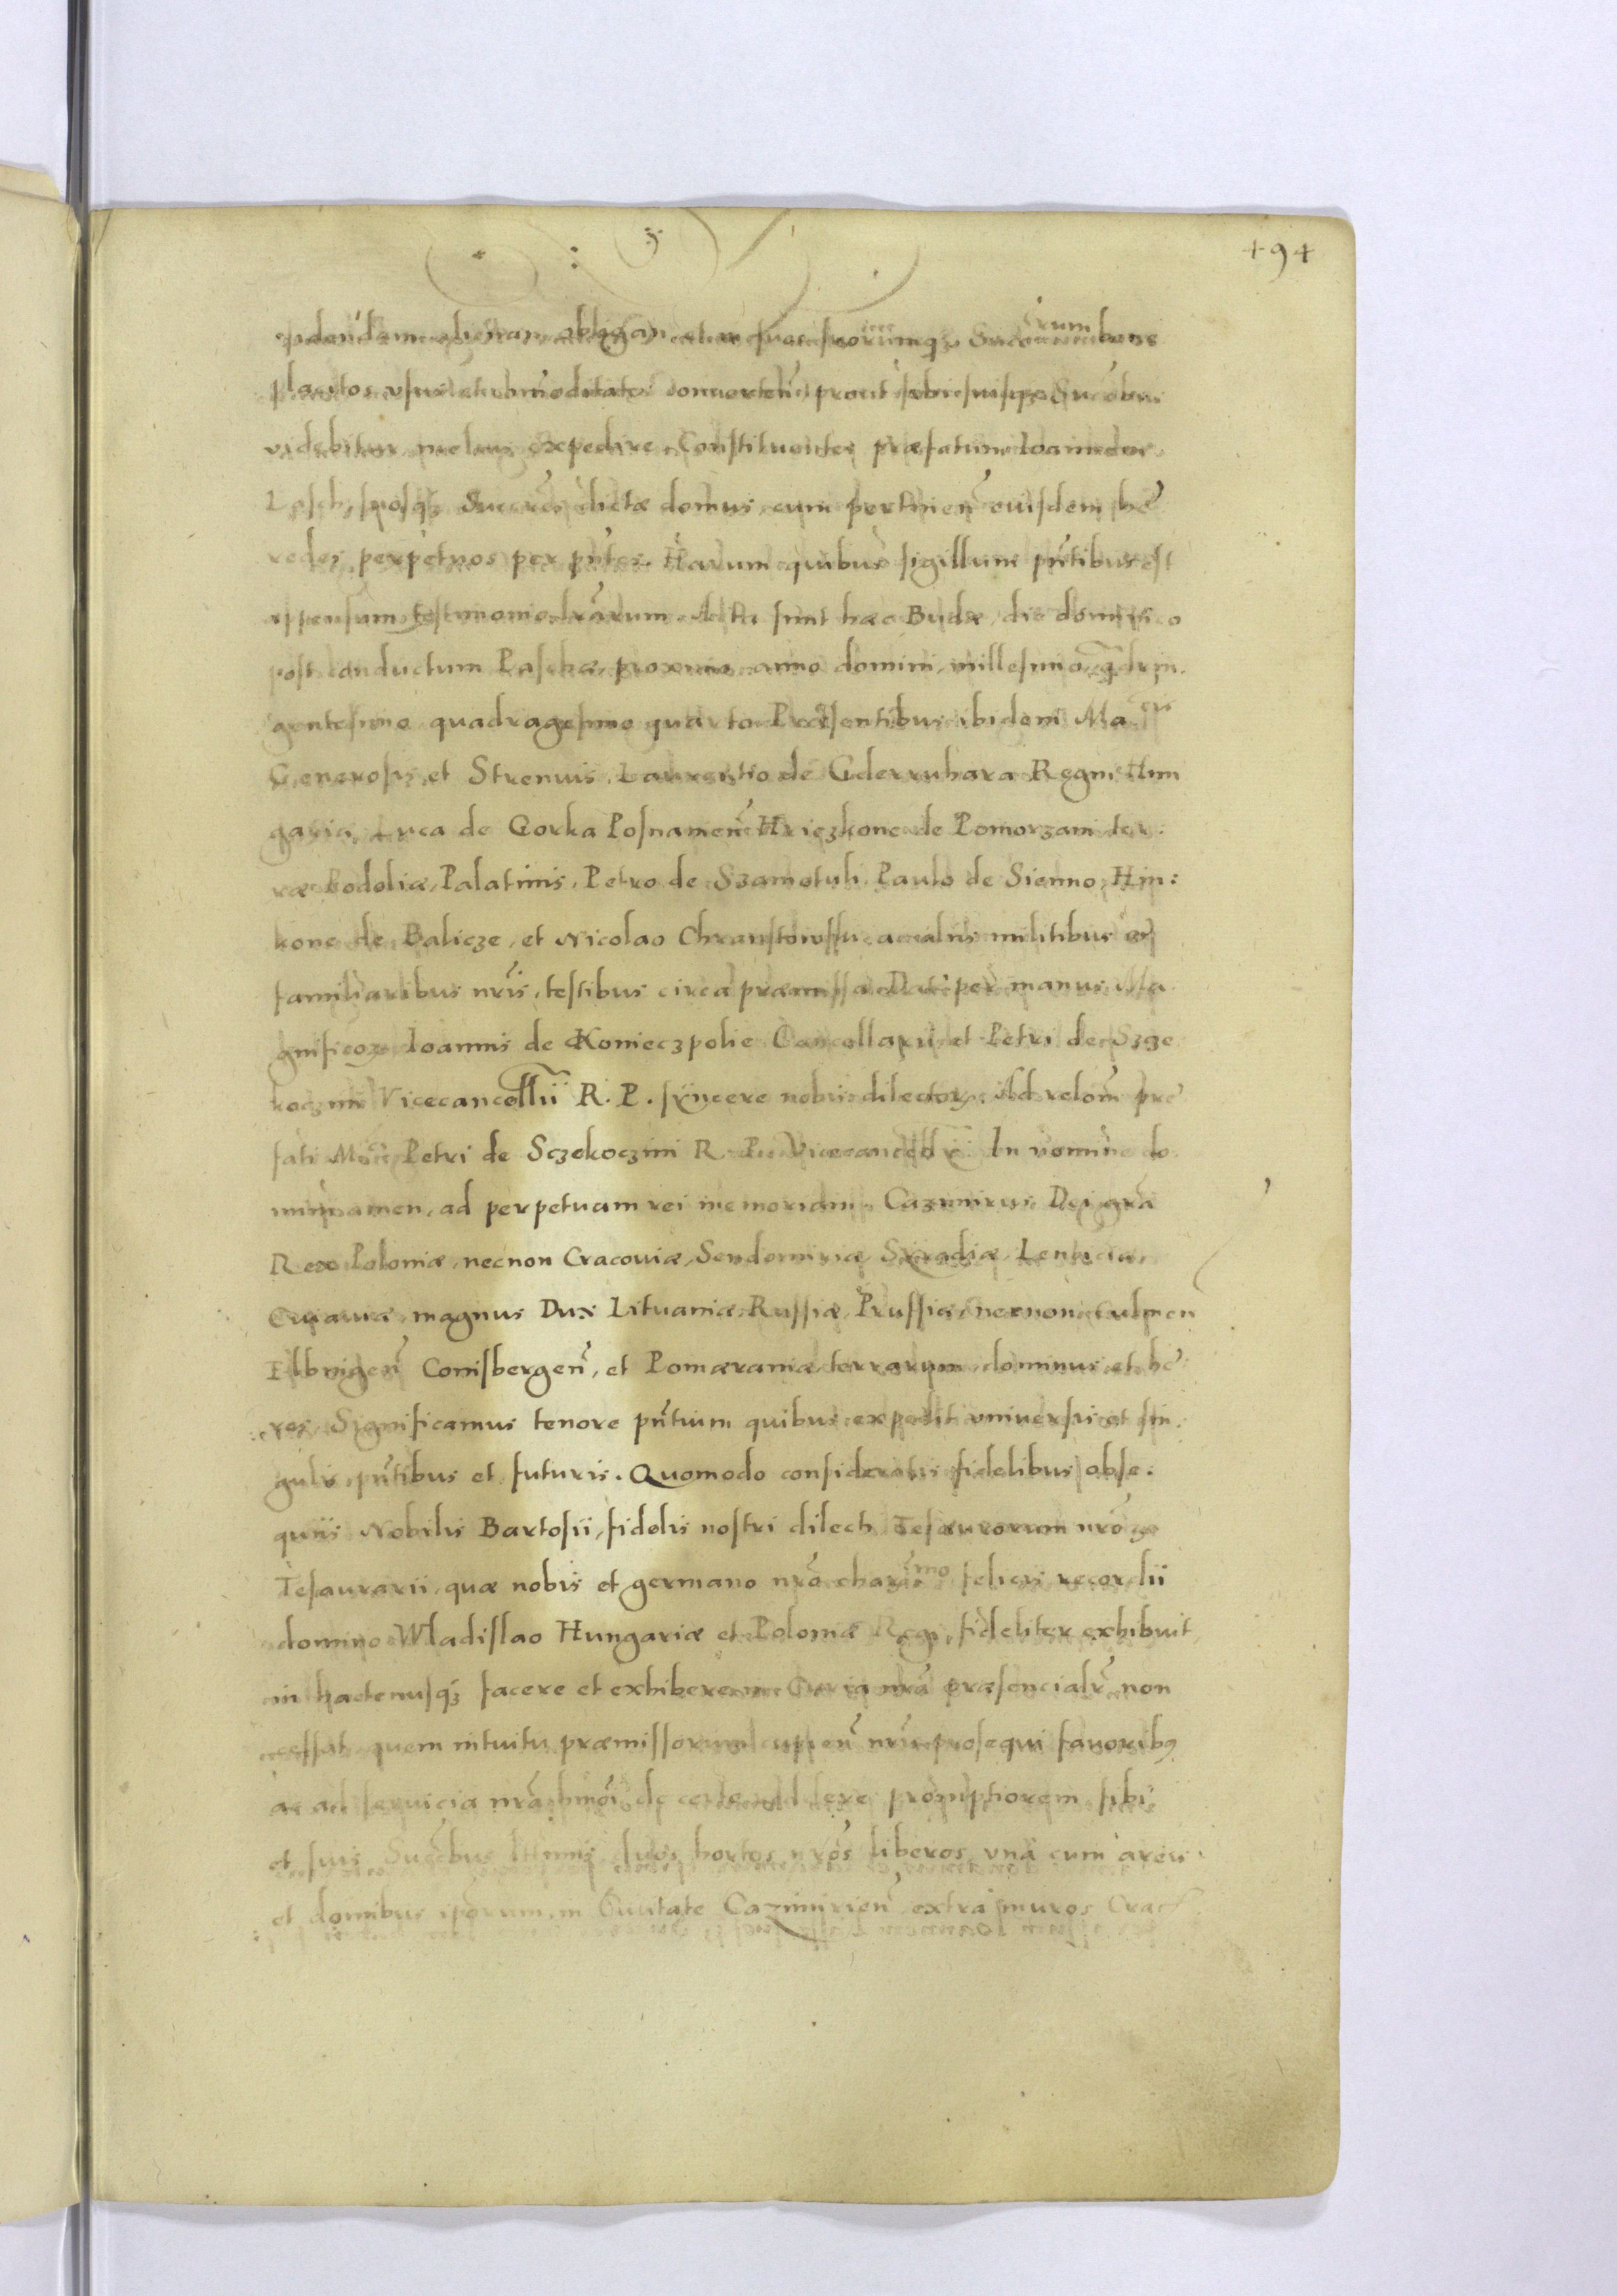 494
alienan obligan et in suos suorumq Succrum bene
placitos vsus et comoditates conuerten prout sibi suisq Succbus
videbitur melius expedire. Constituentes præfatum Ioannem
Lasch, suosq Succres dictæ domus, cum pertinen euisdem hæ
redes perpetuos per pntes. Harum quibus sigillum pntibus est
appensum testimonio lrarum. Acta sunt hæc Budæ, die dominico
post conductum Paschæ, proximo anno domini, millesimo qdrin.
gentesimo quadragesimo quarto. Præsentibus ibidem Ma
Generosis, et Strenuis, Laurentio de Gderruhara Regni Hun
gariæ, Luca de Gorka Posnamen, Hriczkone de Pomorzani ter
ræ Podoliæ, Palatinis, Petro de Szamotuli, Paulo de Sienno, Hin:
kone de Balicze, et Nicolao Chranstowsky acaliis militibus et
familiaribus nris, testibus circa præmissa. Dat per manus Ma
gnificoz Ioannis de Konieczpolie Cancellarii et Petri de Szcze
koczini Vicecancellii R. P. syncere nobis dilectorz. Ad relom præ
fati Mci Petri de Sczekoczini R. P. Vicecancellrii. In nomine do
mini amen, ad perpetuam rei memoriam. Cazimirus Dei gra
Rex Poloniæ, necnon Cracouiæ, Sendomiriæ, Syradiæ, Lenciciæ
Cuiauiæ, magnus Dux Lituaniæ, Russiæ, Prussiæ, necnon Culmen
Elbnigen Conisbergen, et Pomæraniæ terrarum dominus et hæ
res, Significamus tenore pntium quibus expedit vniuersis et sin.
gulis, pntibus et futuris. Quomodo consideratis fidelibus obse.
quiis Nobilis Bartosii, fidelis nostri dilecti Tesaurorum nroz
Tesaurarii, quæ nobis et germano nro charmo felicis recordii
domino Wladislao Hungariæ et Poloniæ Regi, fideliter exhibuit
in hactenusq facere et exhibere in Curia nra præsencialr non
cessat, quem intuitu præmissorum cupien nris prosequi fauoribus
ac ad seruicia nra hmoi de cetero reddere promptiorem sibi
et suis Succbus suos hortos nros liberos vna cum areis
et domibus iporum in Ciuitate Cazimirien extra muros Crac